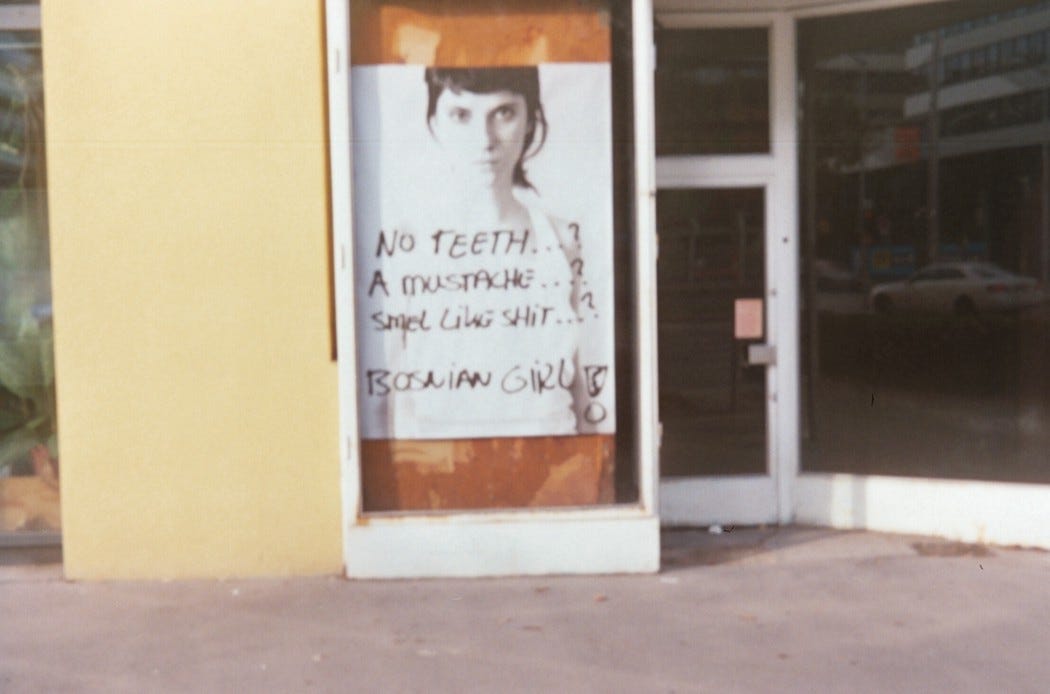 NO TEETH...?
A MUSTACHE...?
SMEL LIKE SHIT...?
BOSNIAN GIRL!